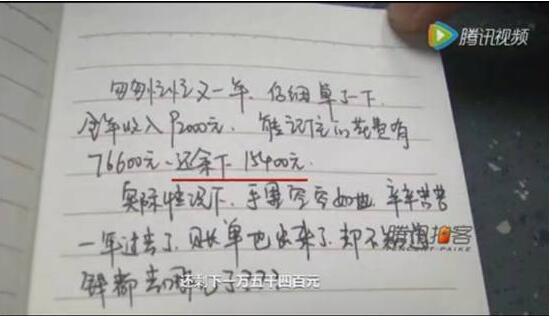 腾讯视频
匆匆忙忙又一年、仔细算了一下
全年收入92000元. 能记住的花费有
76600元、还余下 15400元.
实际情况下、手里空空如也. 辛辛苦苦
一年过去了. 账单也出来了. 却不知道
腾讯拍客
TENCENT PAIKE
钱都去哪儿了???
还剩下一万五千四百元